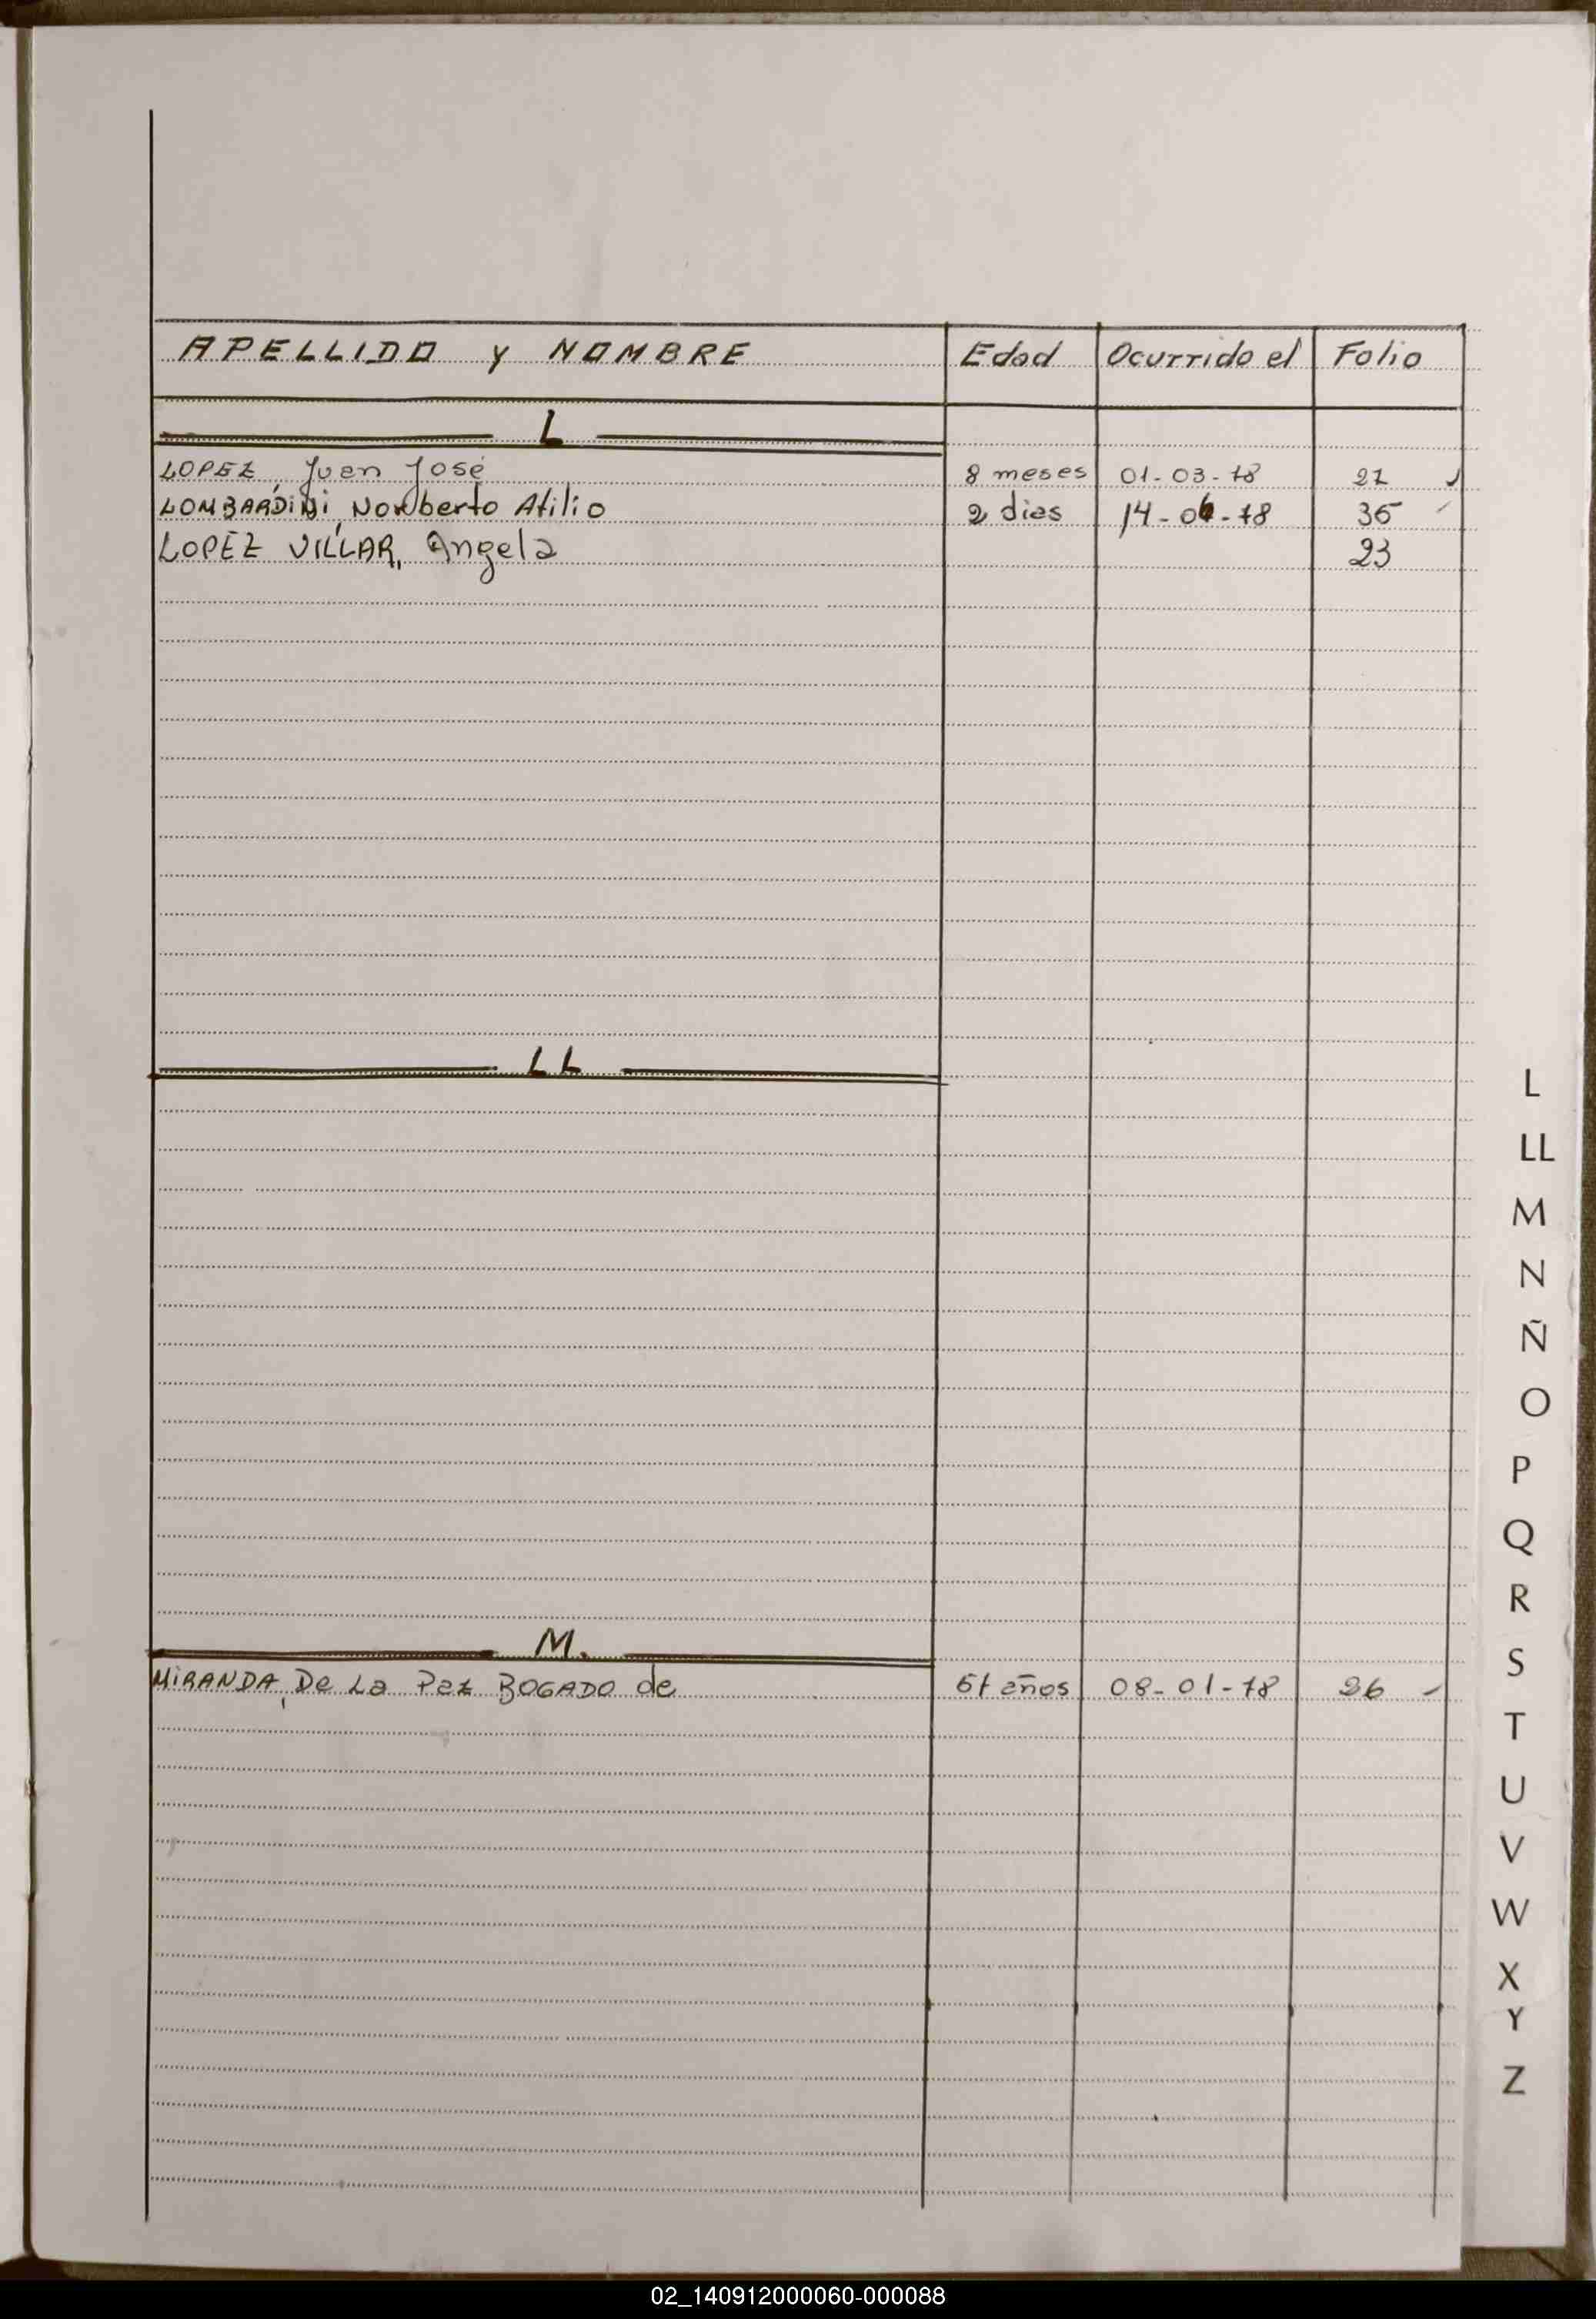 APELLIDO y NOMBRE Edad Ocurrido el Folio
L
LOPEZ, Juan José 8 meses 01-03-78
LOMBARDINI, Norberto Atilio 2 dias 14-06-78 36
LOPEZ VILLAR, Angela 23
LL
M.
MIRANDA, De La Paz BOGADO de años 08-01-78 26
L
LL
M
N
Ñ
O
P
Q
R
S
T
U
V
W
X
Y
Z
02_140912000060-000088